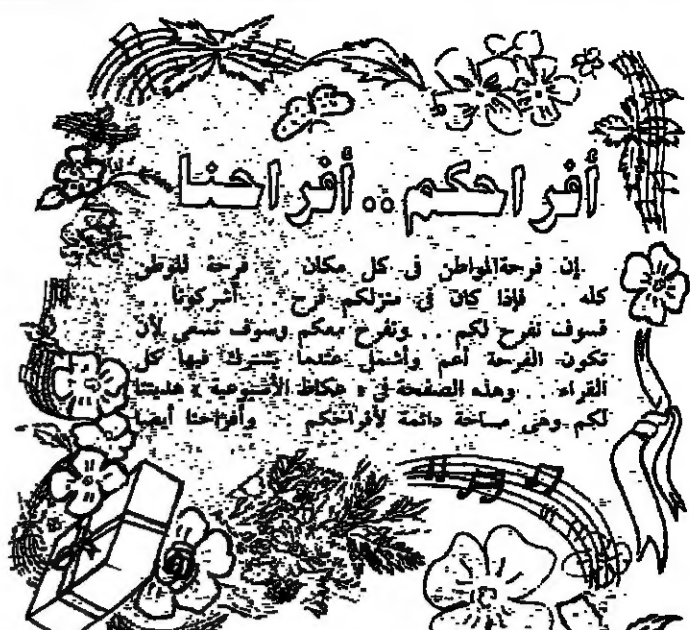 أفراحكم..أفراحنا
إن فرحة المواطن فى كل مكان .. فرحة للوطن
كله .. فإذا كان فى منزلكم فرح .. أشركونا ..
فسوف نفرح لكم .. ونفرح معكم وسوف نسعى لأن
تكون الفرحة أعم وأشمل عندما يشترك فيها كل
القراء .. وهذه الصفحة فى « عكاظ الأسبوعية » هديتنا
لكم وهى مساحة دائمة لأفراحكم .. وأفراحنا أيضا